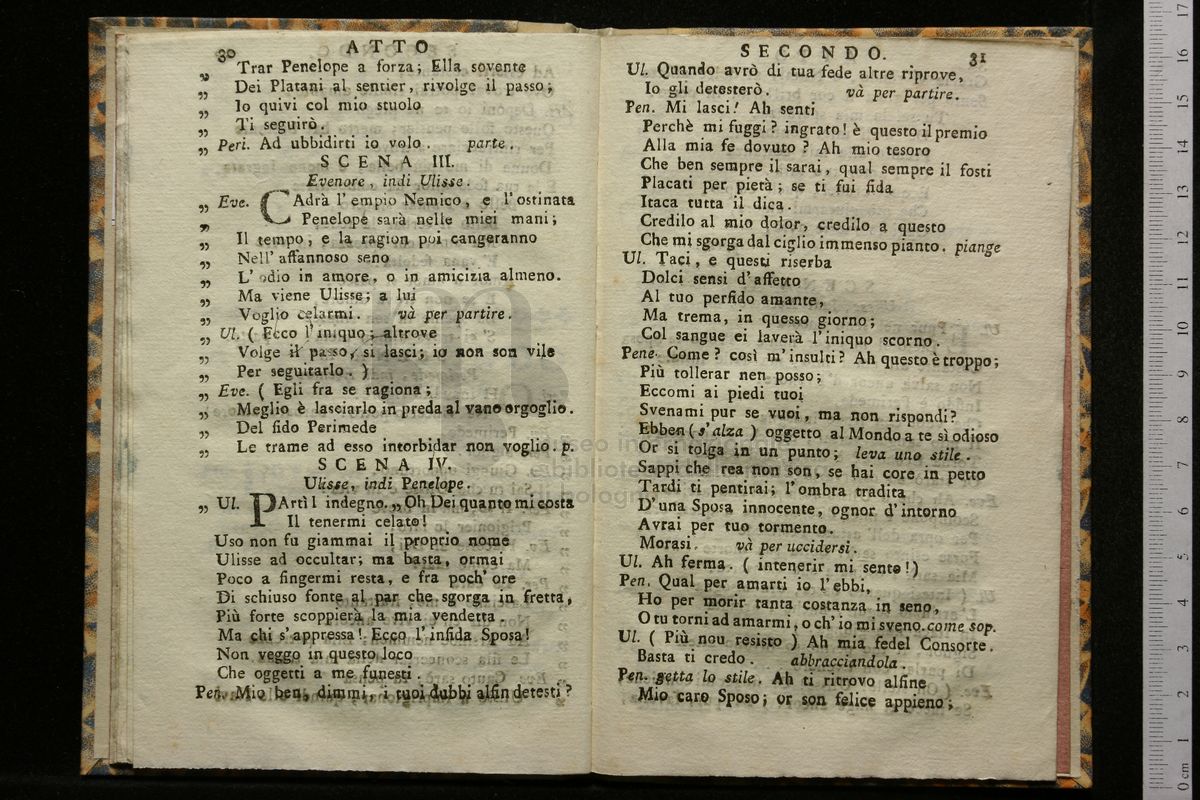 30 ATTO
Trar Penelope a forza; Ella sovente
„ Dei Platani al sentier, rivolge il passo;
„ Io quivi col mio stuolo
„ Ti seguirò.
„ Peri. Ad ubbidirti io volo. parte.
SCENA III.
Evenore, indi Ulisse.
„ Eve. CAdrà l'empio Nemico, e l'ostinata
„ Penelope sarà nelle miei mani;
„ Il tempo, e la ragion poi cangeranno
„ Nell' affannoso seno
„ L' odio in amore, o in amicizia almeno.
„ Ma viene Ulisse; a lui
„ Voglio celarmi. và per partire.
„ Ul. ( Ecco l'iniquo; altrove
„ Volge il passo, si lasci; io non son vile
„ Per seguitarlo. )
„ Eve. ( Egli fra se ragiona;
„ Meglio è lasciarlo in preda al vano orgoglio.
„ Del fido Perimede
„ Le trame ad esso intorbidar non voglio. p.
SCENA IV.
Ulisse, indi Penelope.
„ Ul. PArtì l indegno. „ Oh Dei quanto mi costa
Il tenermi celato!
Uso non fu giammai il proprio nome
Ulisse ad occultar; ma basta, ormai
Poco a fingermi resta, e fra poch' ore
Di schiuso fonte al par che sgorga in fretta,
Più forte scoppierà la mia vendetta.
Ma chi s'appressa! Ecco l'infida Sposa!
Non veggo in questo loco
Che oggetti a me funesti.
Pen. Mio ben, dimmi, i tuoi dubbi alfin detesti?
SECONDO. 31
Ul. Quando avrò di tua fede altre riprove,
Io gli detesterò. và per partire.
Pen. Mi lasci! Ah senti
Perchè mi fuggi? ingrato! è questo il premio
Alla mia fe dovuto? Ah mio tesoro
Che ben sempre il sarai, qual sempre il fosti
Placati per pietà; se ti fui fida
Itaca tutta il dica.
Credilo al mio dolor, credilo a questo
Che mi sgorga dal ciglio immenso pianto. piange
Ul. Taci, e questi riserba
Dolci sensi d'affetto
Al tuo perfido amante,
Ma trema, in questo giorno;
Col sangue ei laverà l'iniquo scorno.
Pene. Come? così m'insulti? Ah questo è troppo;
Più tollerar nen posso;
Eccomi ai piedi tuoi
Svenami pur se vuoi, ma non rispondi?
Ebben (s'alza) oggetto al Mondo a te sì odioso
Or si tolga in un punto; leva uno stile.
Sappi che rea non son, se hai core in petto
Tardi ti pentirai; l'ombra tradita
D'una Sposa innocente, ognor d'intorno
Avrai per tuo tormento.
Morasi. và per uccidersi.
Ul. Ah ferma. ( intenerir mi sento!)
Pen. Qual per amarti io l'ebbi,
Ho per morir tanta costanza in seno,
O tu torni ad amarmi, o ch'io mi sveno. come sop.
Ul. ( Più nou resisto ) Ah mia fedel Consorte.
Basta ti credo. abbracciandola.
Pen. getta lo stile. Ah ti ritrovo alfine
Mio caro Sposo; or son felice appieno;